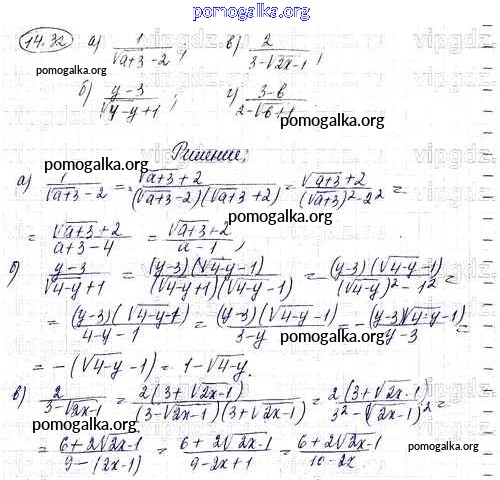 pomogalka.org
14.32 а) 1/(√a+3 - 2) ; в) 2/(3-√2x-1) ;
pomogalka.org
б) (y-3)/(√4-y+1) ; г) (3-b)/(2-√b+1) .
pomogalka.org
Решение:
pomogalka.org
а) 1/(√a+3 - 2) = (√a+3 + 2)/((√a+3 - 2)(√a+3 + 2)) = (√a+3 + 2)/((√a+3)² - 2²) =
pomogalka.org
= (√a+3 + 2)/(a+3-4) = (√a+3 + 2)/(a-1) ,
pomogalka.org
б) (y-3)/(√4-y+1) = (y-3)(√4-y-1)/((√4-y+1)(√4-y-1)) = (y-3)(√4-y-1)/((√4-y)² - 1²) =
= (y-3)(√4-y-1)/(4-y-1) = (y-3)(√4-y-1)/(3-y) = - (y-3)(√4-y-1)/(y-3) =
pomogalka.org
= -(√4-y-1) = 1-√4-y.
pomogalka.org
в) 2/(3-√2x-1) = 2(3+√2x-1)/((3-√2x-1)(3+√2x-1)) = 2(3+√2x-1)/(3²-(√2x-1)²) =
= (6+2√2x-1)/(9-(2x-1)) = (6+2√2x-1)/(9-2x+1) = (6+2√2x-1)/(10-2x) .
pomogalka.org
pomogalka.org